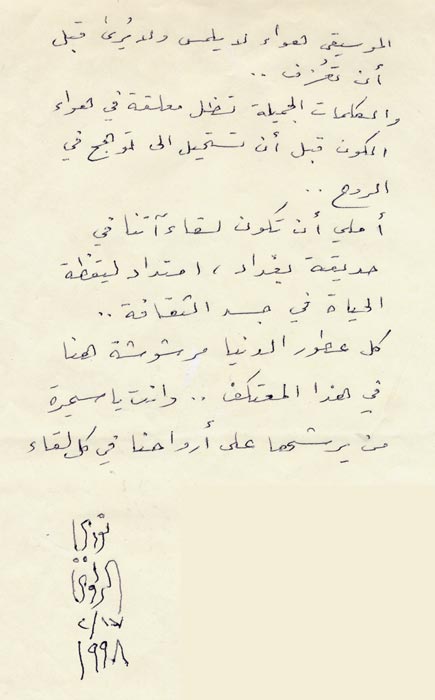 الموسيقى هواء لا يلمس ولا يُرى قبل
أن تُعزف ..
والكلمات الجميلة تظل معلقة في هواء
الكون قبل أن تستحيل الى توهج في
الروح ..
أملي أن تكون لقاءآتنا في
حديقة بغداد ، امتداد ليقظة
الحياة في جسد الثقافة ..
كل عطور الدنيا مرشوشة هنا
في هذا المعتكف .. وانت يا سميرة
من يرشها على أرواحنا في كل لقاء
نوري
الراوي
٢/١٧
١٩٩٨